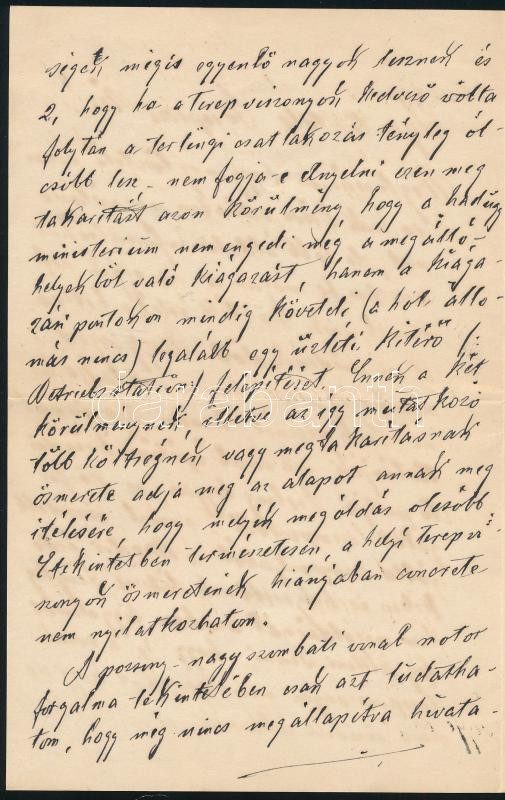 ségek mégis egyenlő nagyok lesznek és
2, hogy ha a terepviszonyok kedvező volta
folytán a terlingi csatlakozás tényleg ol-
csóbb lesz - nem fogja-e elnyelni ezen meg
takaritást azon körülmény hogy a hadügy
ministerium nem engedi még a megálló-
helyekből való kiágazást, hanem a kiága-
zási pontokon mindig követeli (a hol állo-
más nincs) legalább egy üzleti kitérő /:
Betriebsstation:/ felépitését. Ennek a két
körülménynek, illetve az igy mutatkozó
több költségnek vagy megtakaritásnak
ösmerete adja meg az alapot annak meg
itélésére, hogy melyik megoldás olcsóbb.
E tekintetben természetesen, a helyi terepvi-
szonyok ösmeretének hiányában concrete
nem nyilatkozhatom.
A pozsony-nagyszombati vonal motor
forgalma tekintetében csak azt tudatha-
tom, hogy még nincs megállapitva hivata-
darabanth